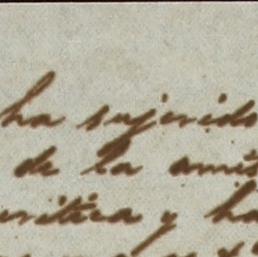 ha sujerido
de la amis
critica y ha